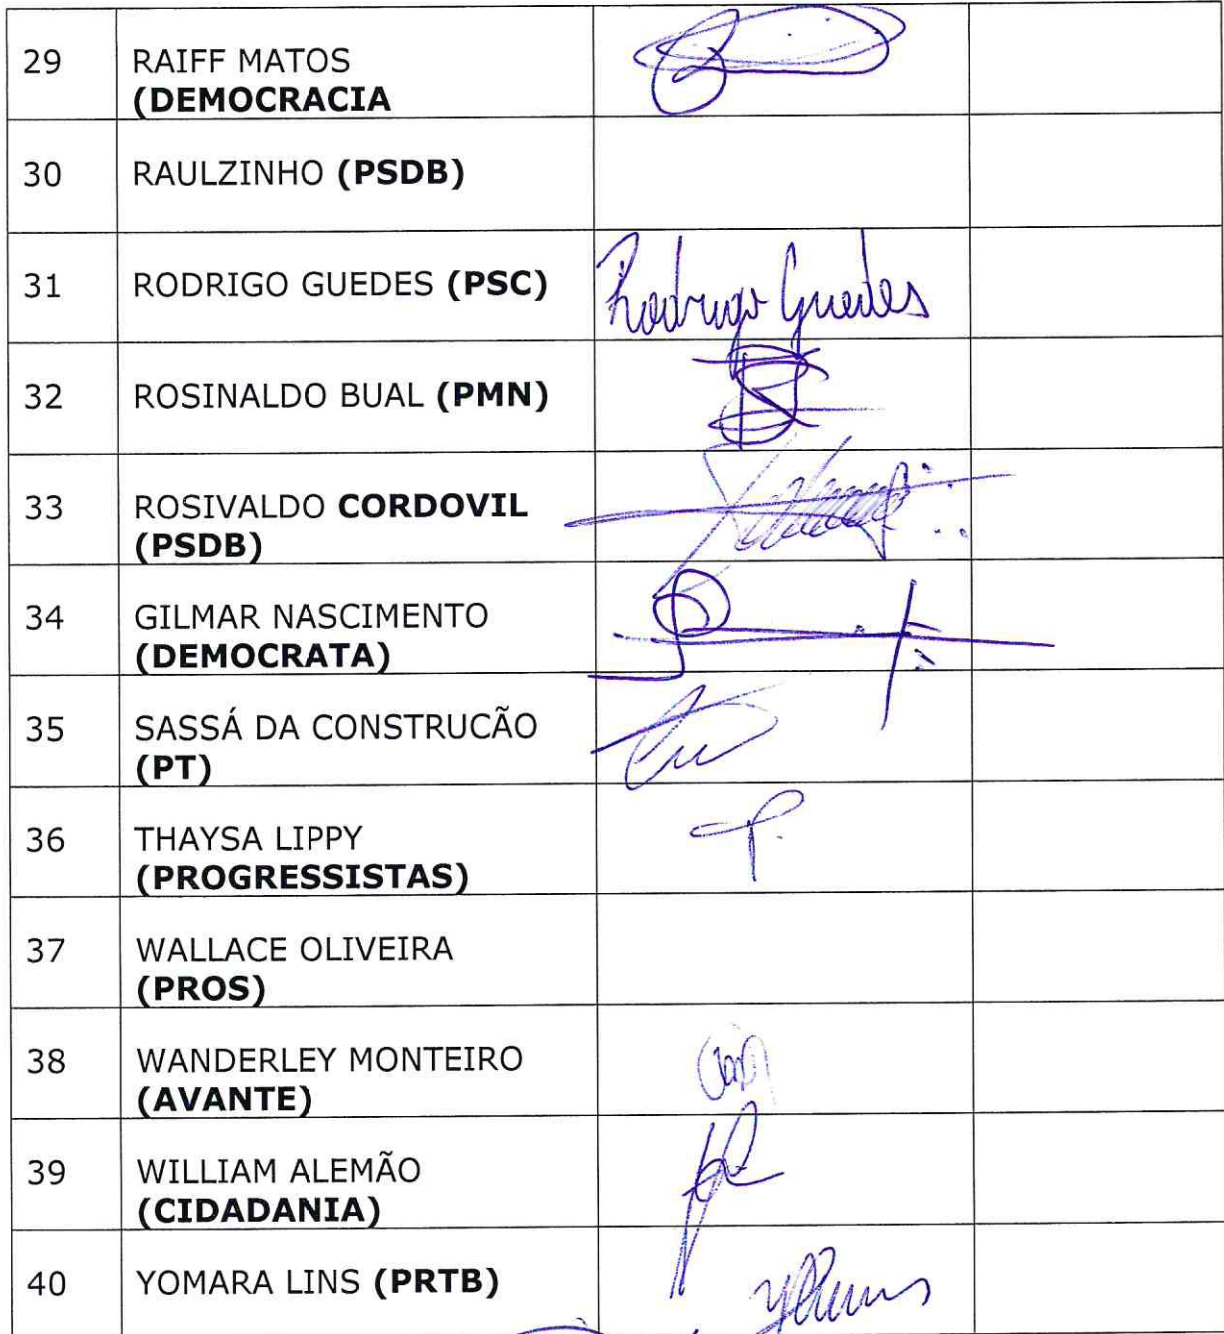 29 RAIFF MATOS
(DEMOCRACIA
30 RAULZINHO (PSDB)
31 RODRIGO GUEDES (PSC) Rodrigo Guedes
32 ROSINALDO BUAL (PMN)
33 ROSIVALDO CORDOVIL
(PSDB)
34 GILMAR NASCIMENTO
(DEMOCRATA)
35 SASSÁ DA CONSTRUCÃO
(PT)
36 THAYSA LIPPY
(PROGRESSISTAS)
37 WALLACE OLIVEIRA
(PROS)
38 WANDERLEY MONTEIRO
(AVANTE)
39 WILLIAM ALEMÃO
(CIDADANIA)
40 YOMARA LINS (PRTB)